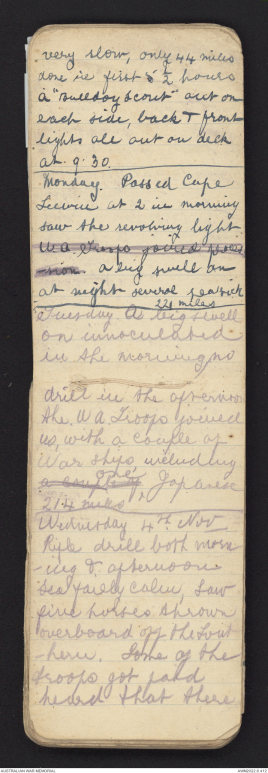 very slow, only 44 miles
done in first 5 1/2 hours
a "bulldog scout" out on
each side, back & front
lights all out on deck
at 9.30.
Monday. Passed Cape
Leewin at 2 in morning
saw the revolving light
W A Troops joined proces
-sion a big swell on
at night several seasick
221 miles
Tuesday A big swell
on innoculated
in the morning no
drill in the afternoon
the W A Troops joined
us, with a couple of
War ships including
a couple of one Japanese
214 miles
Wednesday 4th Nov
Rifle drill both morn
-ing & afternoon
sea fairly calm, saw
five horses thrown
overboard off the Sout
-hern. Some of the
troops got paid
heard that there
AUSTRALIAN WAR MEMORIAL